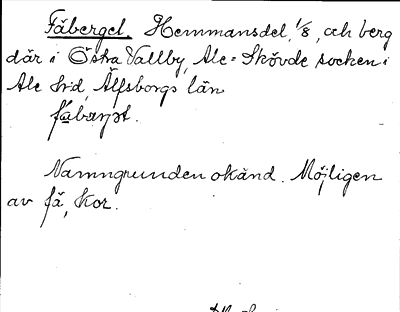 Fäberget. Hemmansdel, 1/8, och berg
där i Östra Vallby, Ale-Skövde socken i
Ale hrd, Älfsborgs län
Namngrunden okänd. Möjligen
av fä, kor.